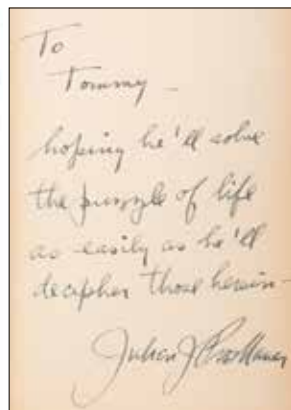 To
Tommy –
hoping he'll solve
the puzzle of life
as easily as he'll
decipher those herein –
Julien J Proskauer